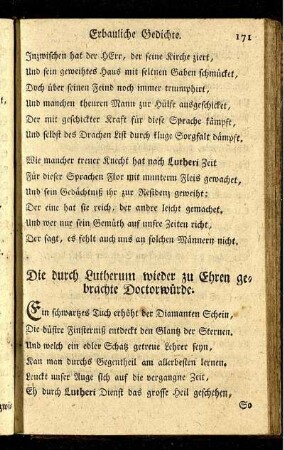 Erbauliche Gedichte. 171
Inzwischen hat der HErr, der seine Kirche ziert,
Und sein geweihtes Haus mit seltnen Gaben schmücket,
Doch über seinen Feind noch immer triumphirt,
Und manchen theuren Mann zur Hülfe ausgeschicket,
Der mit geschickter Kraft für diese Sprache kämpft,
Und selbst des Drachen List durch kluge Sorgfalt dämpft.
Wie mancher treuer Knecht hat nach Lutheri Zeit
Für dieser Sprachen Flor mit munterm Fleis gewachet,
Und sein Gedächtniß ihr zur Residenz geweiht:
Der eine hat sie reich, der andre leicht gemachet,
Und wer nur sein Gemüth auf unsre Zeiten richt,
Der sagt, es fehlt auch uns an solchen Männern nicht.
Die durch Lutherum wieder zu Ehren ge-
brachte Doctorwürde.
Ein schwartzes Tuch erhöht der Diamanten Schein,
Die düstre Finsterniß entdeckt den Glantz der Sternen.
Und welch ein edler Schatz getreue Lehrer seyn,
Kan man durchs Gegentheil am allerbesten lernen.
Lenckt unser Auge sich auf die vergangne Zeit,
Eh durch Lutheri Dienst das grosse Heil geschehen,
So